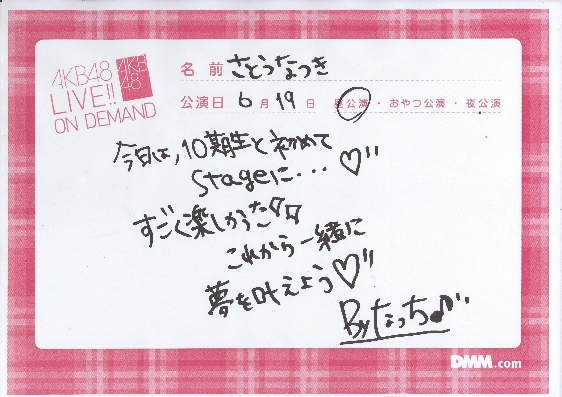 AKB48
LIVE!!
ON DEMAND
AKB
48
名前 さとうなつき
公演日 6月19日 昼公演・おやつ公演・夜公演
今日は,10期生と初めて
Stageに・・・♡
すごく楽しかった
これから一緒に
夢を叶えよう♡
Byなっち♪
DMM.com